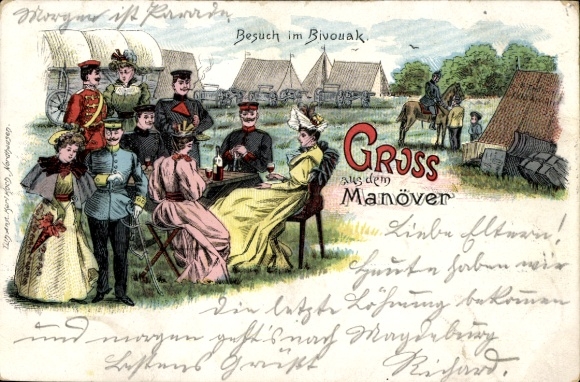 Morgen ist Parade
Besuch im Bivouak.
Gruss
aus dem
Manöver
Liebe Eltern!
Heute haben wir
die letzte Löhnung bekommen
und morgen geht's nach Magdeburg
Bestens Grüßt Richard.